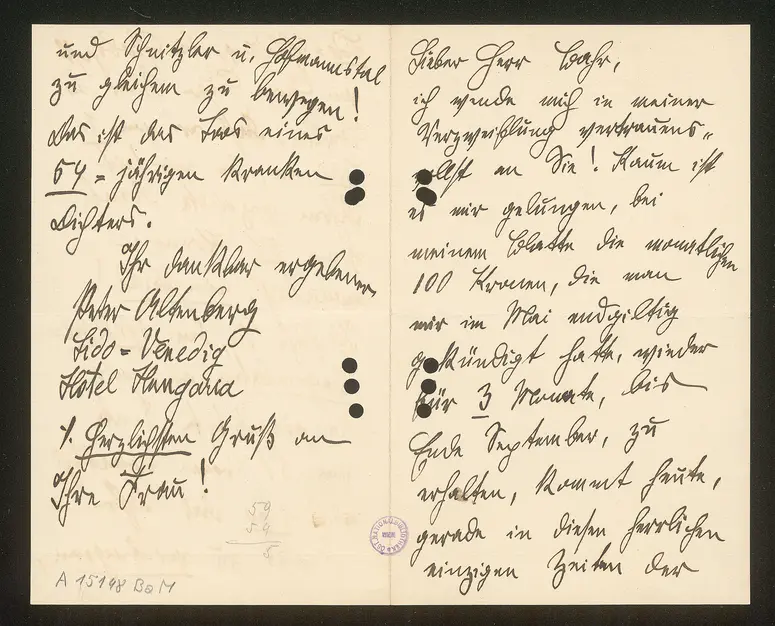 und Schnitzler u. Hofmannstal
zu gleichem zu bewegen!
Das ist das Loos eines
54 = jährigen kranken
Dichters.
Ihr dankbar ergebener
Peter Altenberg
Lido = Venedig
Hotel Hungaria
Herzlichsten Gruß an
Ihre Frau!
59
54
5
A 15148 BaM
Lieber Herr Bahr,
ich wende mich in meiner
Verzweiflung vertrauens„
vollst an Sie! Kaum ist
es mir gelungen, bei
meinem Blatte die monatlichen
100 Kronen, die man
mir im Mai endgiltig
gekündigt hatte, wieder
für 3 Monate, bis
Ende September, zu
erhalten, kommt heute,
gerade in diesen herrlichen
einzigen Zeiten der